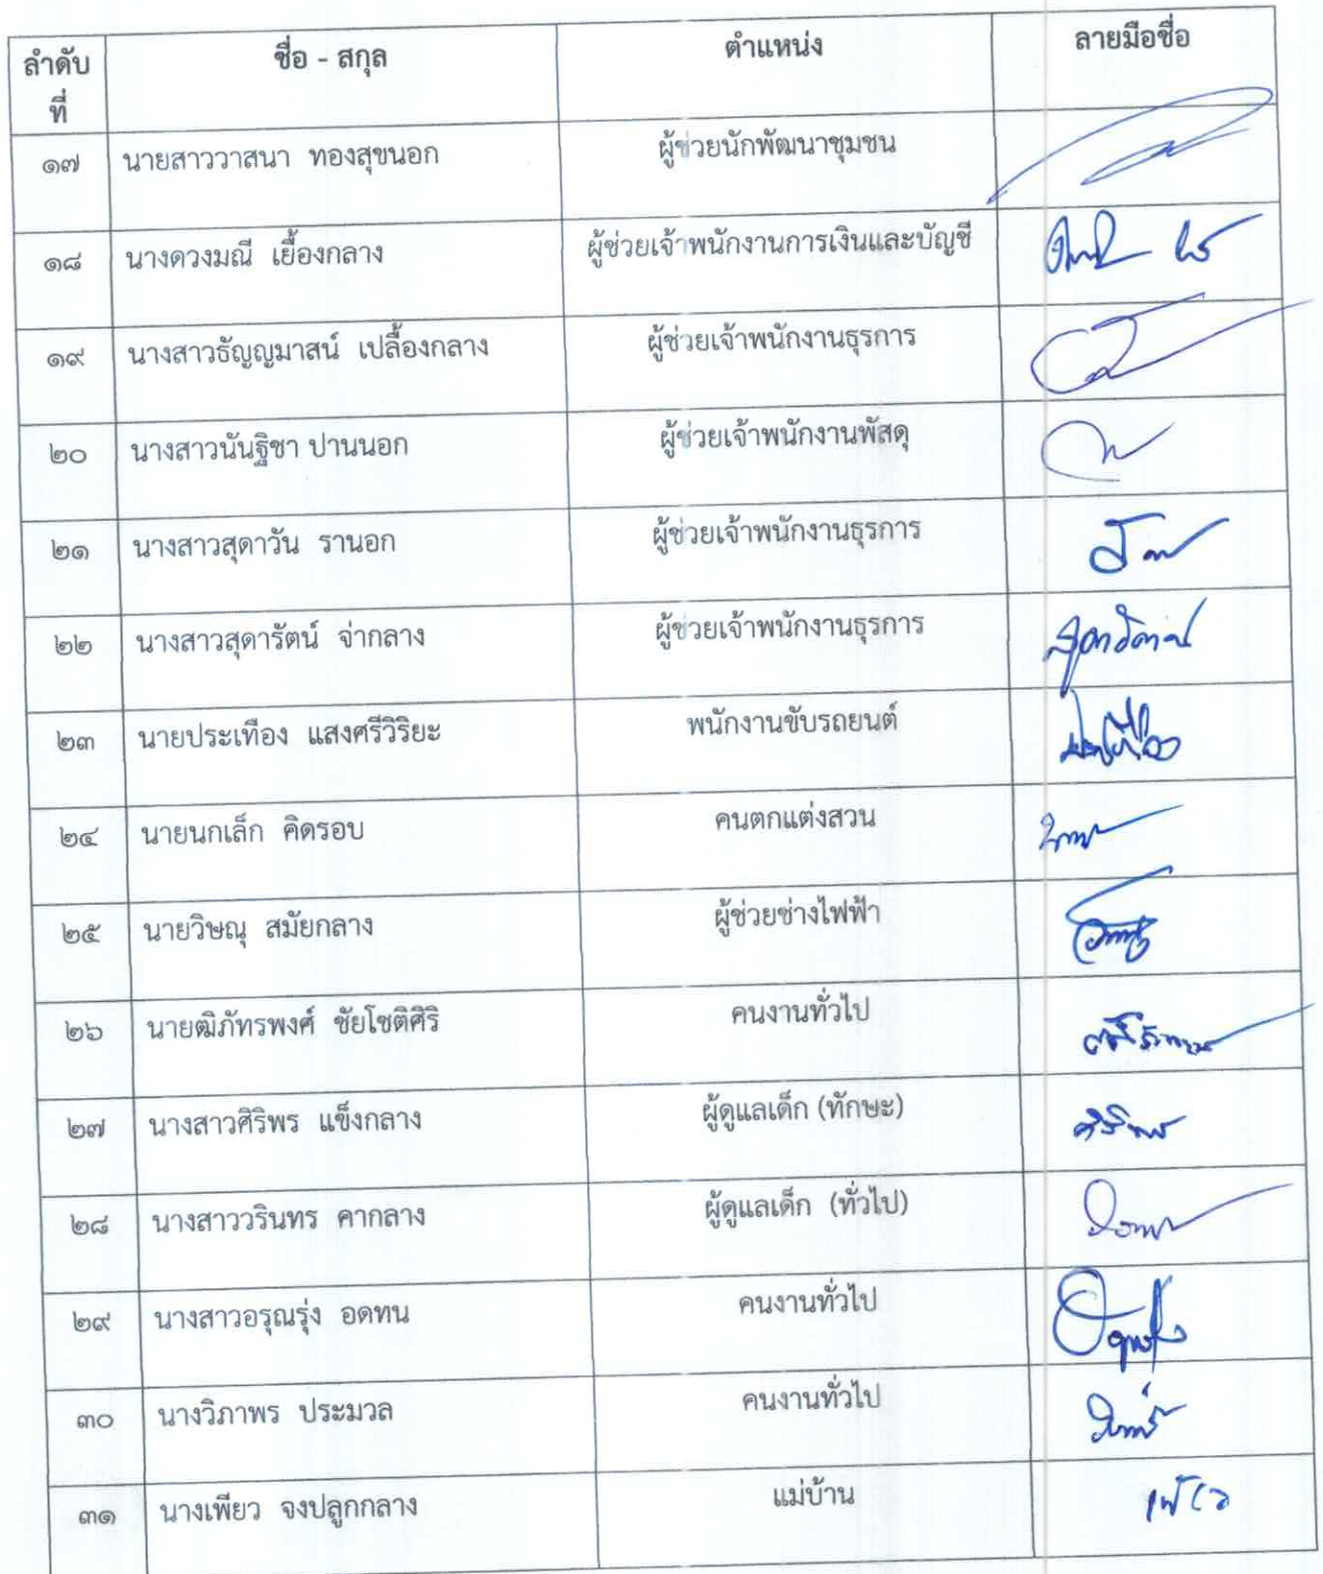 ลำดับที่ ชื่อ - สกุล ตำแหน่ง ลายมือชื่อ
๑๗ นายสาววาสนา ทองสุขนอก ผู้ช่วยนักพัฒนาชุมชน
๑๘ นางดวงมณี เยื้องกลาง ผู้ช่วยเจ้าพนักงานการเงินและบัญชี
๑๙ นางสาวธัญญมาสน์ เปลื้องกลาง ผู้ช่วยเจ้าพนักงานธุรการ
๒๐ นางสาวนันฐิชา ปานนอก ผู้ช่วยเจ้าพนักงานพัสดุ
๒๑ นางสาวสุดาวัน รานอก ผู้ช่วยเจ้าพนักงานธุรการ
๒๒ นางสาวสุดารัตน์ จ่ากลาง ผู้ช่วยเจ้าพนักงานธุรการ
๒๓ นายประเทือง แสงศรีวิริยะ พนักงานขับรถยนต์
๒๔ นายนกเล็ก คิดรอบ คนตกแต่งสวน
๒๕ นายวิษณุ สมัยกลาง ผู้ช่วยช่างไฟฟ้า
๒๖ นายฒิภัทรพงศ์ ชัยโชติศิริ คนงานทั่วไป
๒๗ นางสาวศิริพร แข็งกลาง ผู้ดูแลเด็ก (ทักษะ) ศิริพร
๒๘ นางสาววรินทร คากลาง ผู้ดูแลเด็ก (ทั่วไป)
๒๙ นางสาวอรุณรุ่ง อดทน คนงานทั่วไป
๓๐ นางวิภาพร ประมวล คนงานทั่วไป
๓๑ นางเพียว จงปลูกกลาง แม่บ้าน